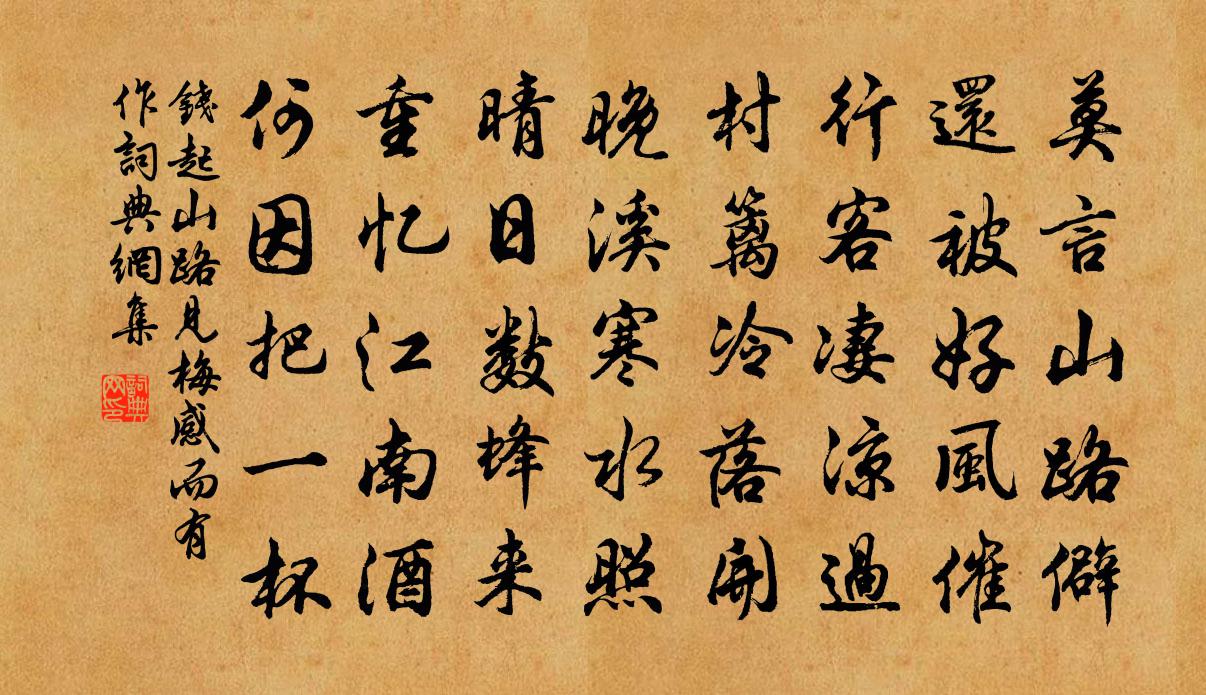 莫言山路僻
還被好風催
行客凄凉過
村籬冷落開
晚溪寒水照
晴日數蜂来
重忆江南酒
何因把一杯
錢起山路見梅感而有
作詞典網集
詞典
网印